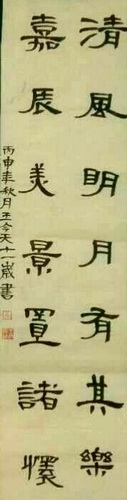 清風明月有其樂
嘉辰美景置諸懷
丙申年秋月王今天十一歲書